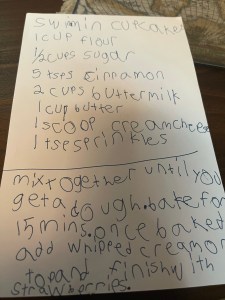 swmin cupcakes
1 cup flour
1/2 cups sugar
5 tses cinnamon
2 cups buttermilk
1 cup butter
1 scoop creamcheese
1 tse sprinkles
mix together until you
get a dough. bake for
15 mins. once baked
add whipped cream on
top and finish with
strawberries.